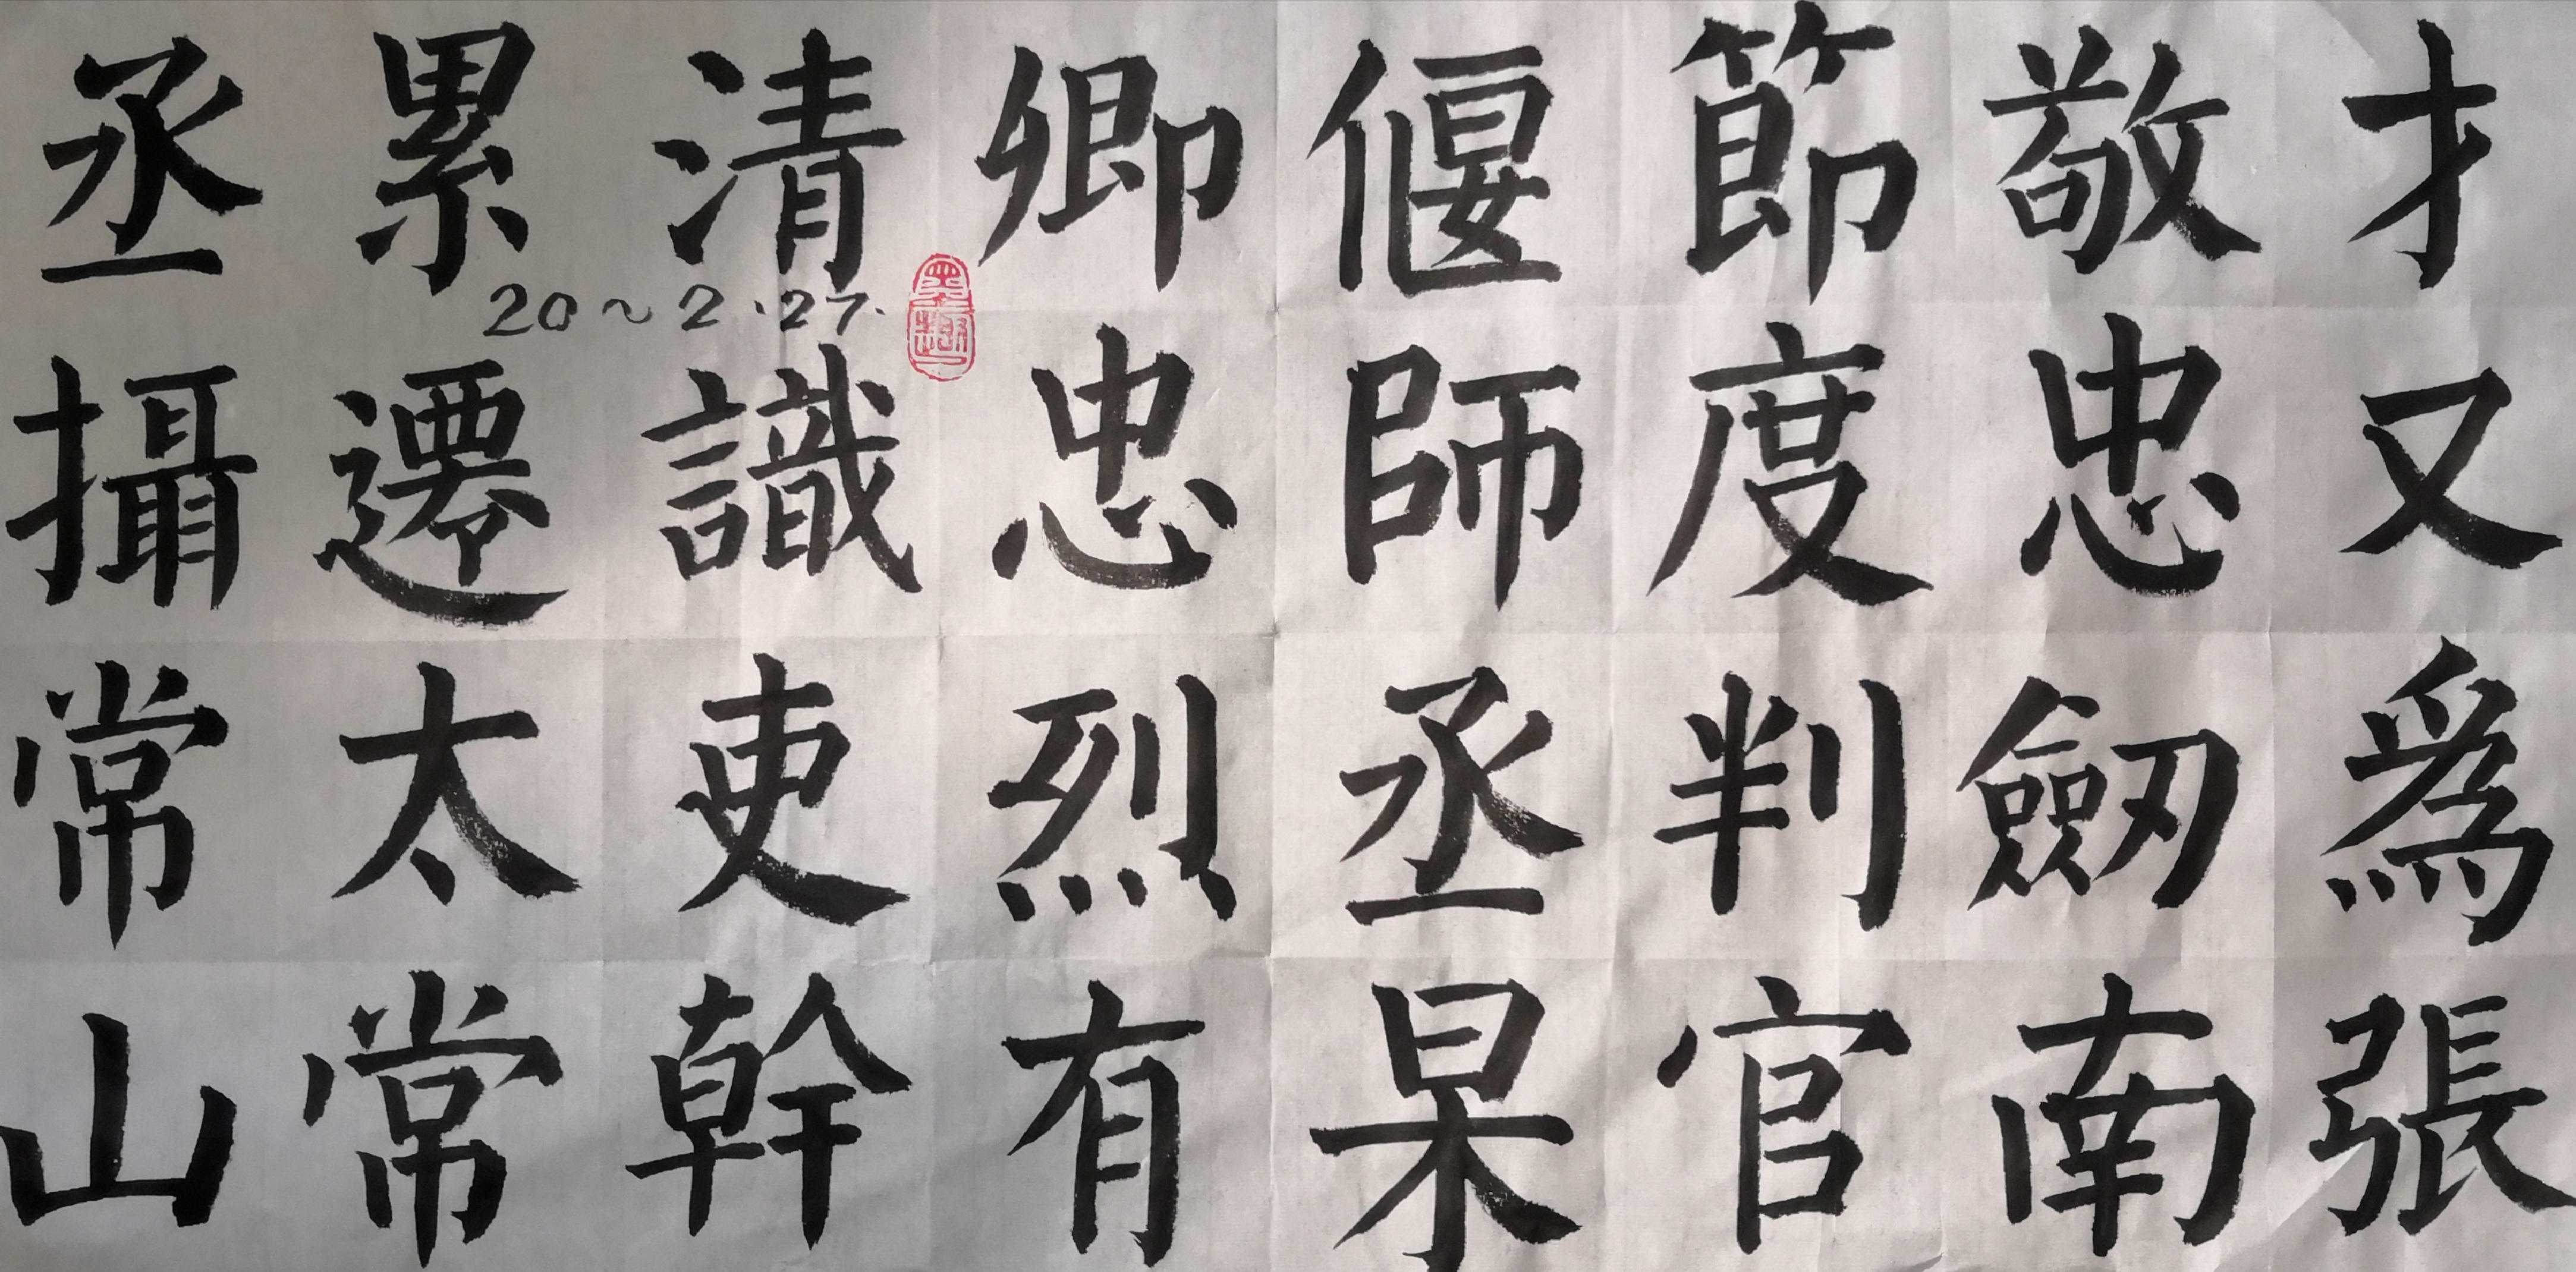 才又爲張
敬忠劒南
節度判官
偃師丞杲
卿忠烈有
清識吏幹
累遷太常
丞攝常山
20~2.27.